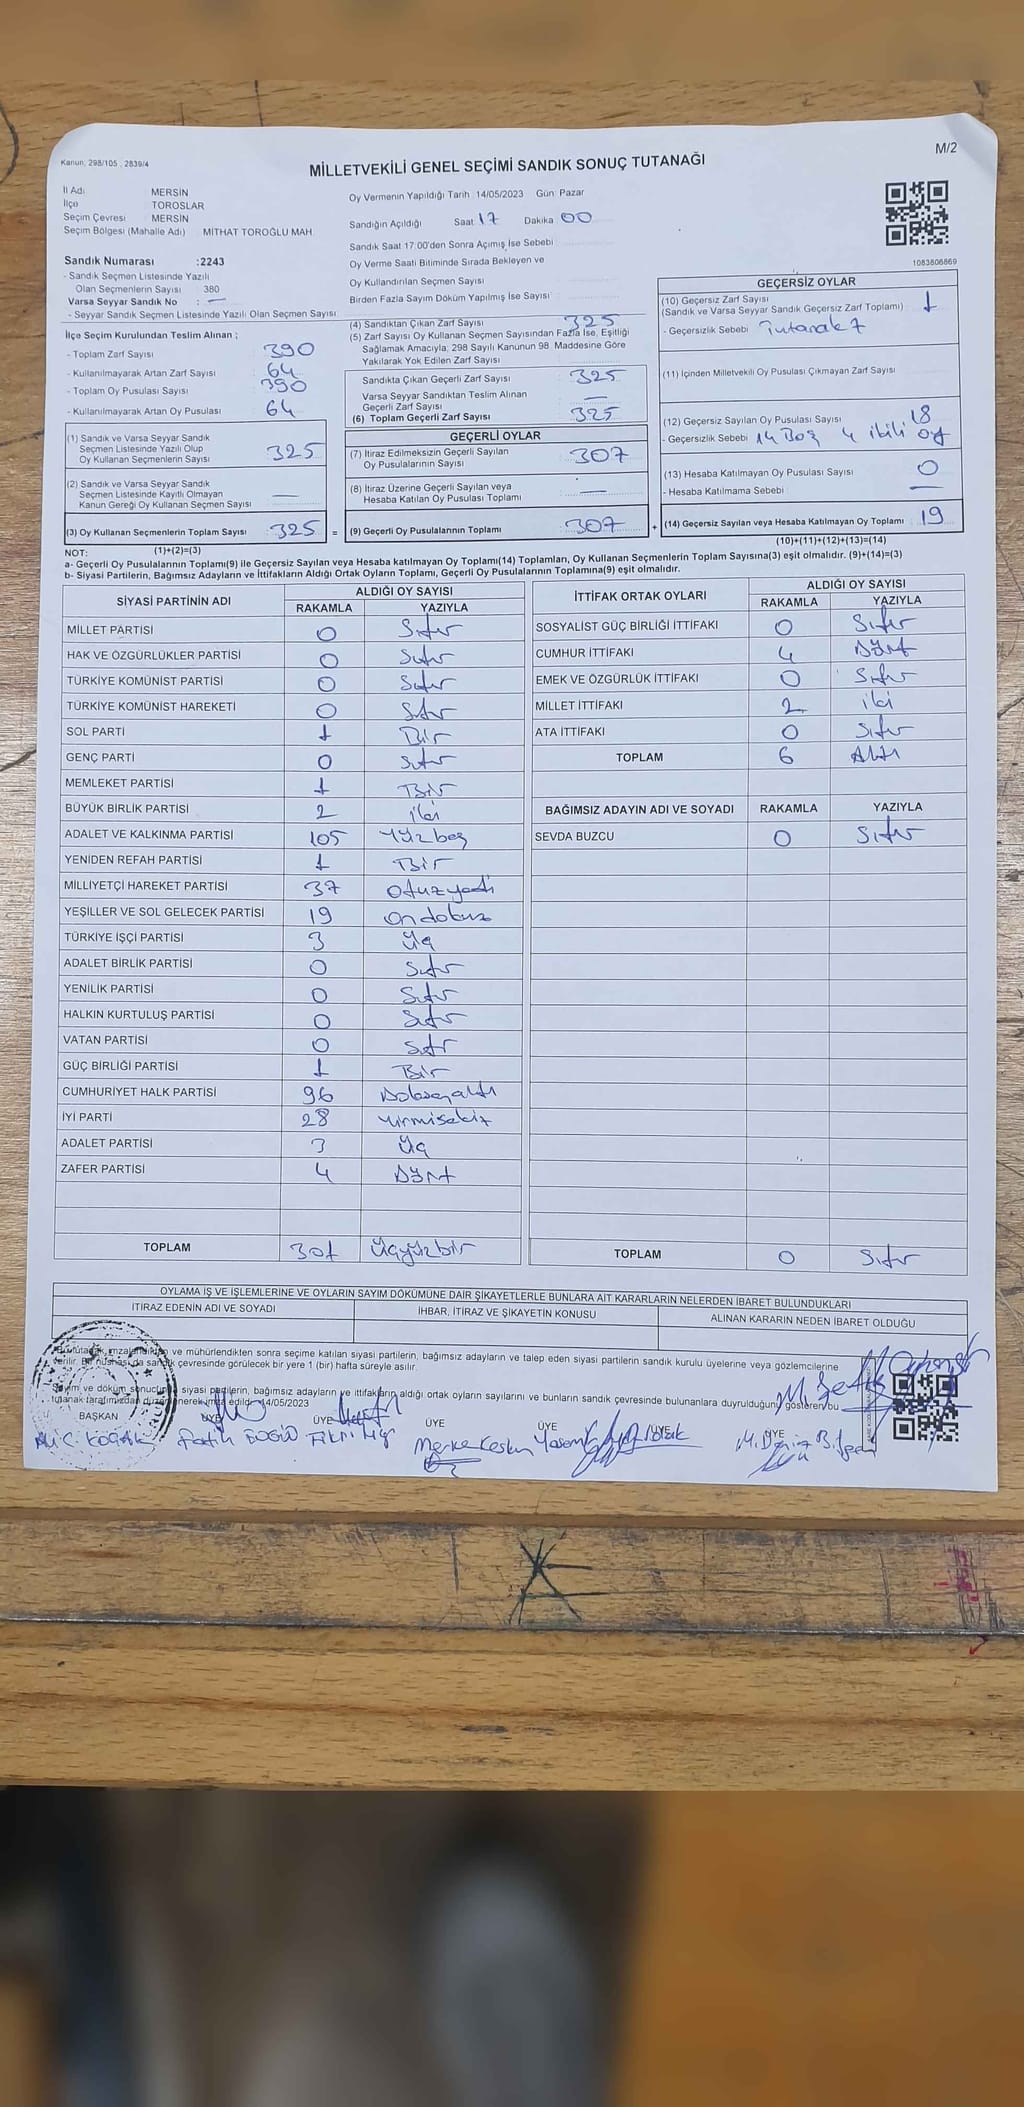 Kanun; 298/105 , 2839/4
M/2
MİLLETVEKİLİ GENEL SEÇİMİ SANDIK SONUÇ TUTANAĞI
İl Adı MERSİN
İlçe TOROSLAR
Seçim Çevresi MERSİN
Seçim Bölgesi (Mahalle Adı) MİTHAT TOROĞLU MAH.
Sandık Numarası :2243
- Sandık Seçmen Listesinde Yazılı
Olan Seçmenlerin Sayısı 380
Varsa Seyyar Sandık No : —
- Seyyar Sandık Seçmen Listesinde Yazılı Olan Seçmen Sayısı
Oy Vermenin Yapıldığı Tarih 14/05/2023 Gün Pazar
Sandığın Açıldığı Saat 17 Dakika 00
Sandık Saat 17:00'den Sonra Açımış İse Sebebi
Oy Verme Saati Bitiminde Sırada Bekleyen ve
Oy Kullandırılan Seçmen Sayısı
Birden Fazla Sayım Döküm Yapılmış İse Sayısı
1083806869
İlçe Seçim Kurulundan Teslim Alınan ;
- Toplam Zarf Sayısı 390
- Kullanılmayarak Artan Zarf Sayısı 64
- Toplam Oy Pusulası Sayısı 390
- Kullanılmayarak Artan Oy Pusulası 64
(1) Sandık ve Varsa Seyyar Sandık
Seçmen Listesinde Yazılı Olup
Oy Kullanan Seçmenlerin Sayısı 325
(2) Sandık ve Varsa Seyyar Sandık
Seçmen Listesinde Kayıtlı Olmayan
Kanun Gereği Oy Kullanan Seçmen Sayısı —
(3) Oy Kullanan Seçmenlerin Toplam Sayısı 325 =
(1)+(2)=(3)
(4) Sandıktan Çıkan Zarf Sayısı 325
(5) Zarf Sayısı Oy Kullanan Seçmen Sayısından Fazla İse, Eşitliği
Sağlamak Amacıyla; 298 Sayılı Kanunun 98. Maddesine Göre
Yakılarak Yok Edilen Zarf Sayısı
Sandıkta Çıkan Geçerli Zarf Sayısı 325
Varsa Seyyar Sandıktan Teslim Alınan
Geçerli Zarf Sayısı —
(6) Toplam Geçerli Zarf Sayısı 325
GEÇERLİ OYLAR
(7) İtiraz Edilmeksizin Geçerli Sayılan
Oy Pusulalarının Sayısı 307
(8) İtiraz Üzerine Geçerli Sayılan veya
Hesaba Katılan Oy Pusulası Toplamı —
(9) Geçerli Oy Pusulalarının Toplamı 307 +
GEÇERSİZ OYLAR
(10) Geçersiz Zarf Sayısı
(Sandık ve Varsa Seyyar Sandık Geçersiz Zarf Toplamı) 1
- Geçersizlik Sebebi Tutanak 7
(11) İçinden Milletvekili Oy Pusulası Çıkmayan Zarf Sayısı
(12) Geçersiz Sayılan Oy Pusulası Sayısı 18
- Geçersizlik Sebebi 14 Boş 4 ikili oy
(13) Hesaba Katılmayan Oy Pusulası Sayısı 0
- Hesaba Katılmama Sebebi —
(14) Geçersiz Sayılan veya Hesaba Katılmayan Oy Toplamı 19
(10)+(11)+(12)+(13)=(14)
NOT:
a- Geçerli Oy Pusulalarının Toplamı(9) ile Geçersiz Sayılan veya Hesaba katılmayan Oy Toplamı(14) Toplamları, Oy Kullanan Seçmenlerin Toplam Sayısına(3) eşit olmalıdır. (9)+(14)=(3)
b- Siyasi Partilerin, Bağımsız Adayların ve İttifakların Aldığı Ortak Oyların Toplamı, Geçerli Oy Pusulalarının Toplamına(9) eşit olmalıdır.
SİYASİ PARTİNİN ADI ALDIĞI OY SAYISI
RAKAMLA YAZIYLA
MİLLET PARTİSİ 0 Sıfır
HAK VE ÖZGÜRLÜKLER PARTİSİ 0 Sıfır
TÜRKİYE KOMÜNİST PARTİSİ 0 Sıfır
TÜRKİYE KOMÜNİST HAREKETİ 0 Sıfır
SOL PARTİ 1 Bir
GENÇ PARTİ 0 Sıfır
MEMLEKET PARTİSİ 1 Bir
BÜYÜK BİRLİK PARTİSİ 2 iki
ADALET VE KALKINMA PARTİSİ 105 Yüzbeş
YENİDEN REFAH PARTİSİ 1 Bir
MİLLİYETÇİ HAREKET PARTİSİ 37 Otuzyedi
YEŞİLLER VE SOL GELECEK PARTİSİ 19 Ondokuz
TÜRKİYE İŞÇİ PARTİSİ 3 Üç
ADALET BİRLİK PARTİSİ 0 Sıfır
YENİLİK PARTİSİ 0 Sıfır
HALKIN KURTULUŞ PARTİSİ 0 Sıfır
VATAN PARTİSİ 0 Sıfır
GÜÇ BİRLİĞİ PARTİSİ 1 Bir
CUMHURİYET HALK PARTİSİ 96 Doksanaltı
İYİ PARTİ 28 Yirmisekiz
ADALET PARTİSİ 3 Üç
ZAFER PARTİSİ 4 Dört
TOPLAM 301 Üçyüzbir
İTTİFAK ORTAK OYLARI ALDIĞI OY SAYISI
RAKAMLA YAZIYLA
SOSYALİST GÜÇ BİRLİĞİ İTTİFAKI 0 Sıfır
CUMHUR İTTİFAKI 4 Dört
EMEK VE ÖZGÜRLÜK İTTİFAKI 0 Sıfır
MİLLET İTTİFAKI 2 iki
ATA İTTİFAKI 0 Sıfır
TOPLAM 6 Altı
BAĞIMSIZ ADAYIN ADI VE SOYADI RAKAMLA YAZIYLA
SEVDA BUZCU 0 Sıfır
TOPLAM 0 Sıfır
OYLAMA İŞ VE İŞLEMLERİNE VE OYLARIN SAYIM DÖKÜMÜNE DAİR ŞİKAYETLERLE BUNLARA AİT KARARLARIN NELERDEN İBARET BULUNDUKLARI
İTİRAZ EDENİN ADI VE SOYADI İHBAR, İTİRAZ VE ŞİKAYETİN KONUSU ALINAN KARARIN NEDEN İBARET OLDUĞU
ve mühürlendikten sonra seçime katılan siyasi partilerin, bağımsız adayların ve talep eden siyasi partilerin sandık kurulu üyelerine veya gözlemcilerine
verilir. Bir nüshası da sandık çevresinde görülecek bir yere 1 (bir) hafta süreyle asılır.
Sayım ve döküm sonucunda siyasi partilerin, bağımsız adayların ve ittifakların aldığı ortak oyların sayılarını ve bunların sandık çevresinde bulunanlara duyrulduğunu gösteren bu
tutanak tarafımızdan düzenlenerek imza edildi. 14/05/2023
BAŞKAN ÜYE ÜYE ÜYE ÜYE ÜYE ÜYE
Fatih Merve Keskin